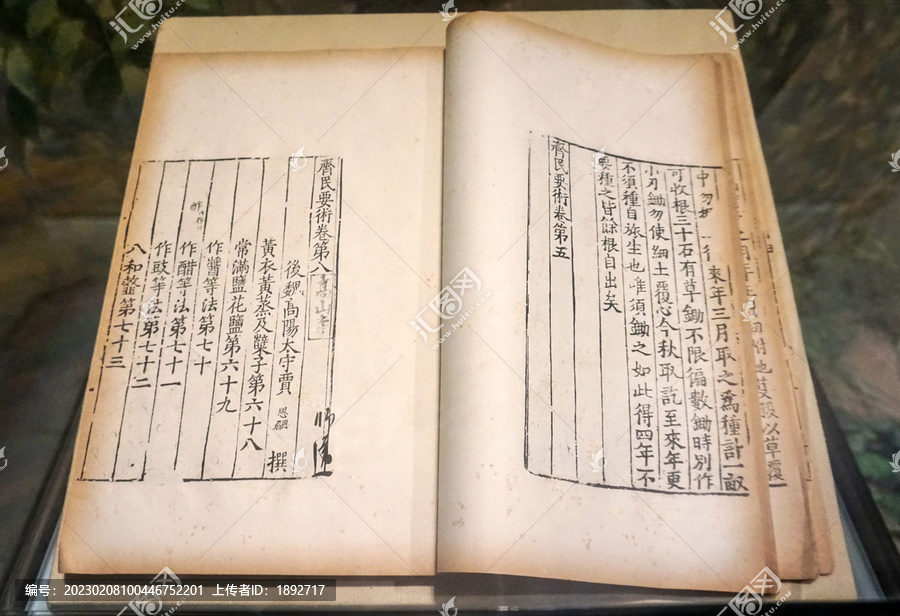 來年三月取之爲種計一畝
中勿
可收根三十石有草鋤不限徧數鋤時別作
小刃鋤勿使細土覆心今秋取訖至來年更
不須種自旅生也唯須鋤之如此得四年不
要種之皆餘根自出矣
齊民要術卷第五
齊民要術卷第八
後魏高陽太守賈思勰撰
黃衣黃蒸及糵子第六十八
常滿鹽花鹽第六十九
作醬等法第七十
作酢等法第七十一
作豉等法第七十二
八和虀第七十三
編号：20230208100446752201 上传者ID：1892717
huitu.com